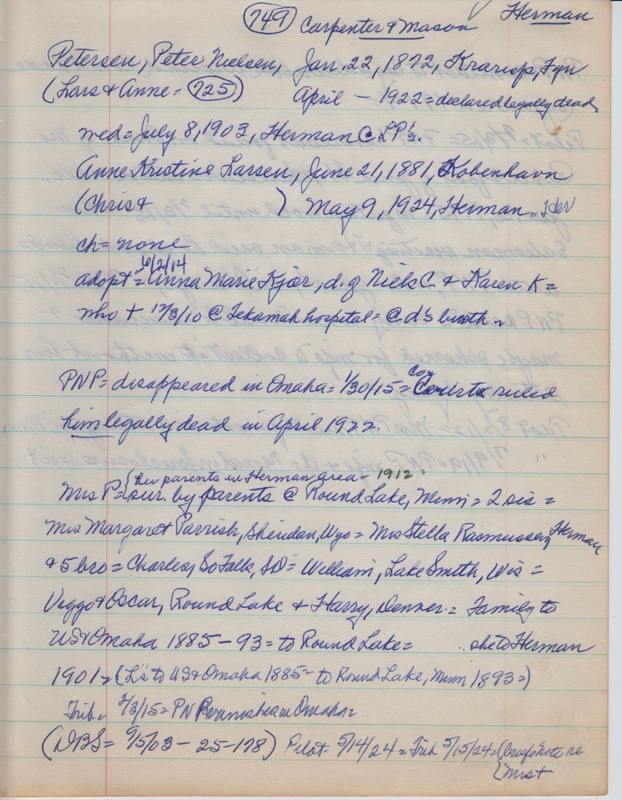 749 Carpenter & Mason ✓ Herman
Petersen, Peter Nielsen, Jan. 22, 1872, Fyn
(Lars & Anne = 725) April - 1922 = declared legally dead
wed = July 8, 1903, Herman @ LP's.
Anne Kristine Larsen, June 21, 1881, Kobenhavn
(Chris & ) May 9, 1924, Herman
ch = none
6/2/14
adopt = Anna Marie Kjer, d. of Niels C. & Karen K =
who + 12/3/10 @ Tekamah hospital = @ d's birth.
PNP = disappeared in Omaha = 1/30/15 = Court ruled
him legally dead in April 1922.
(her parents in Herman area = 1912 =
Mrs P = sur. by parents @ Round Lake, Minn = 2 sis =
Mrs Margaret Parrish, Sheridan, Wyo = Mrs Stella Rasmussen, Herman
& 5 bro = Charles, So Falls, SD = William, Lake Smith, Wis =
Viggo & Oscar, Round Lake & Harry, Denver = Family to
US & Omaha 1885-93 = to Round Lake = .. she to Herman
1901 = (L's to US & Omaha 1885- to Round Lake, Minn 1893 =)
Trib. 2/3/15 = PN in Omaha =
(DBS = 9/5/03 - 25-178) Pilot 5/14/24 = Trib 5/15/24 = (brief note re
(Mrs +